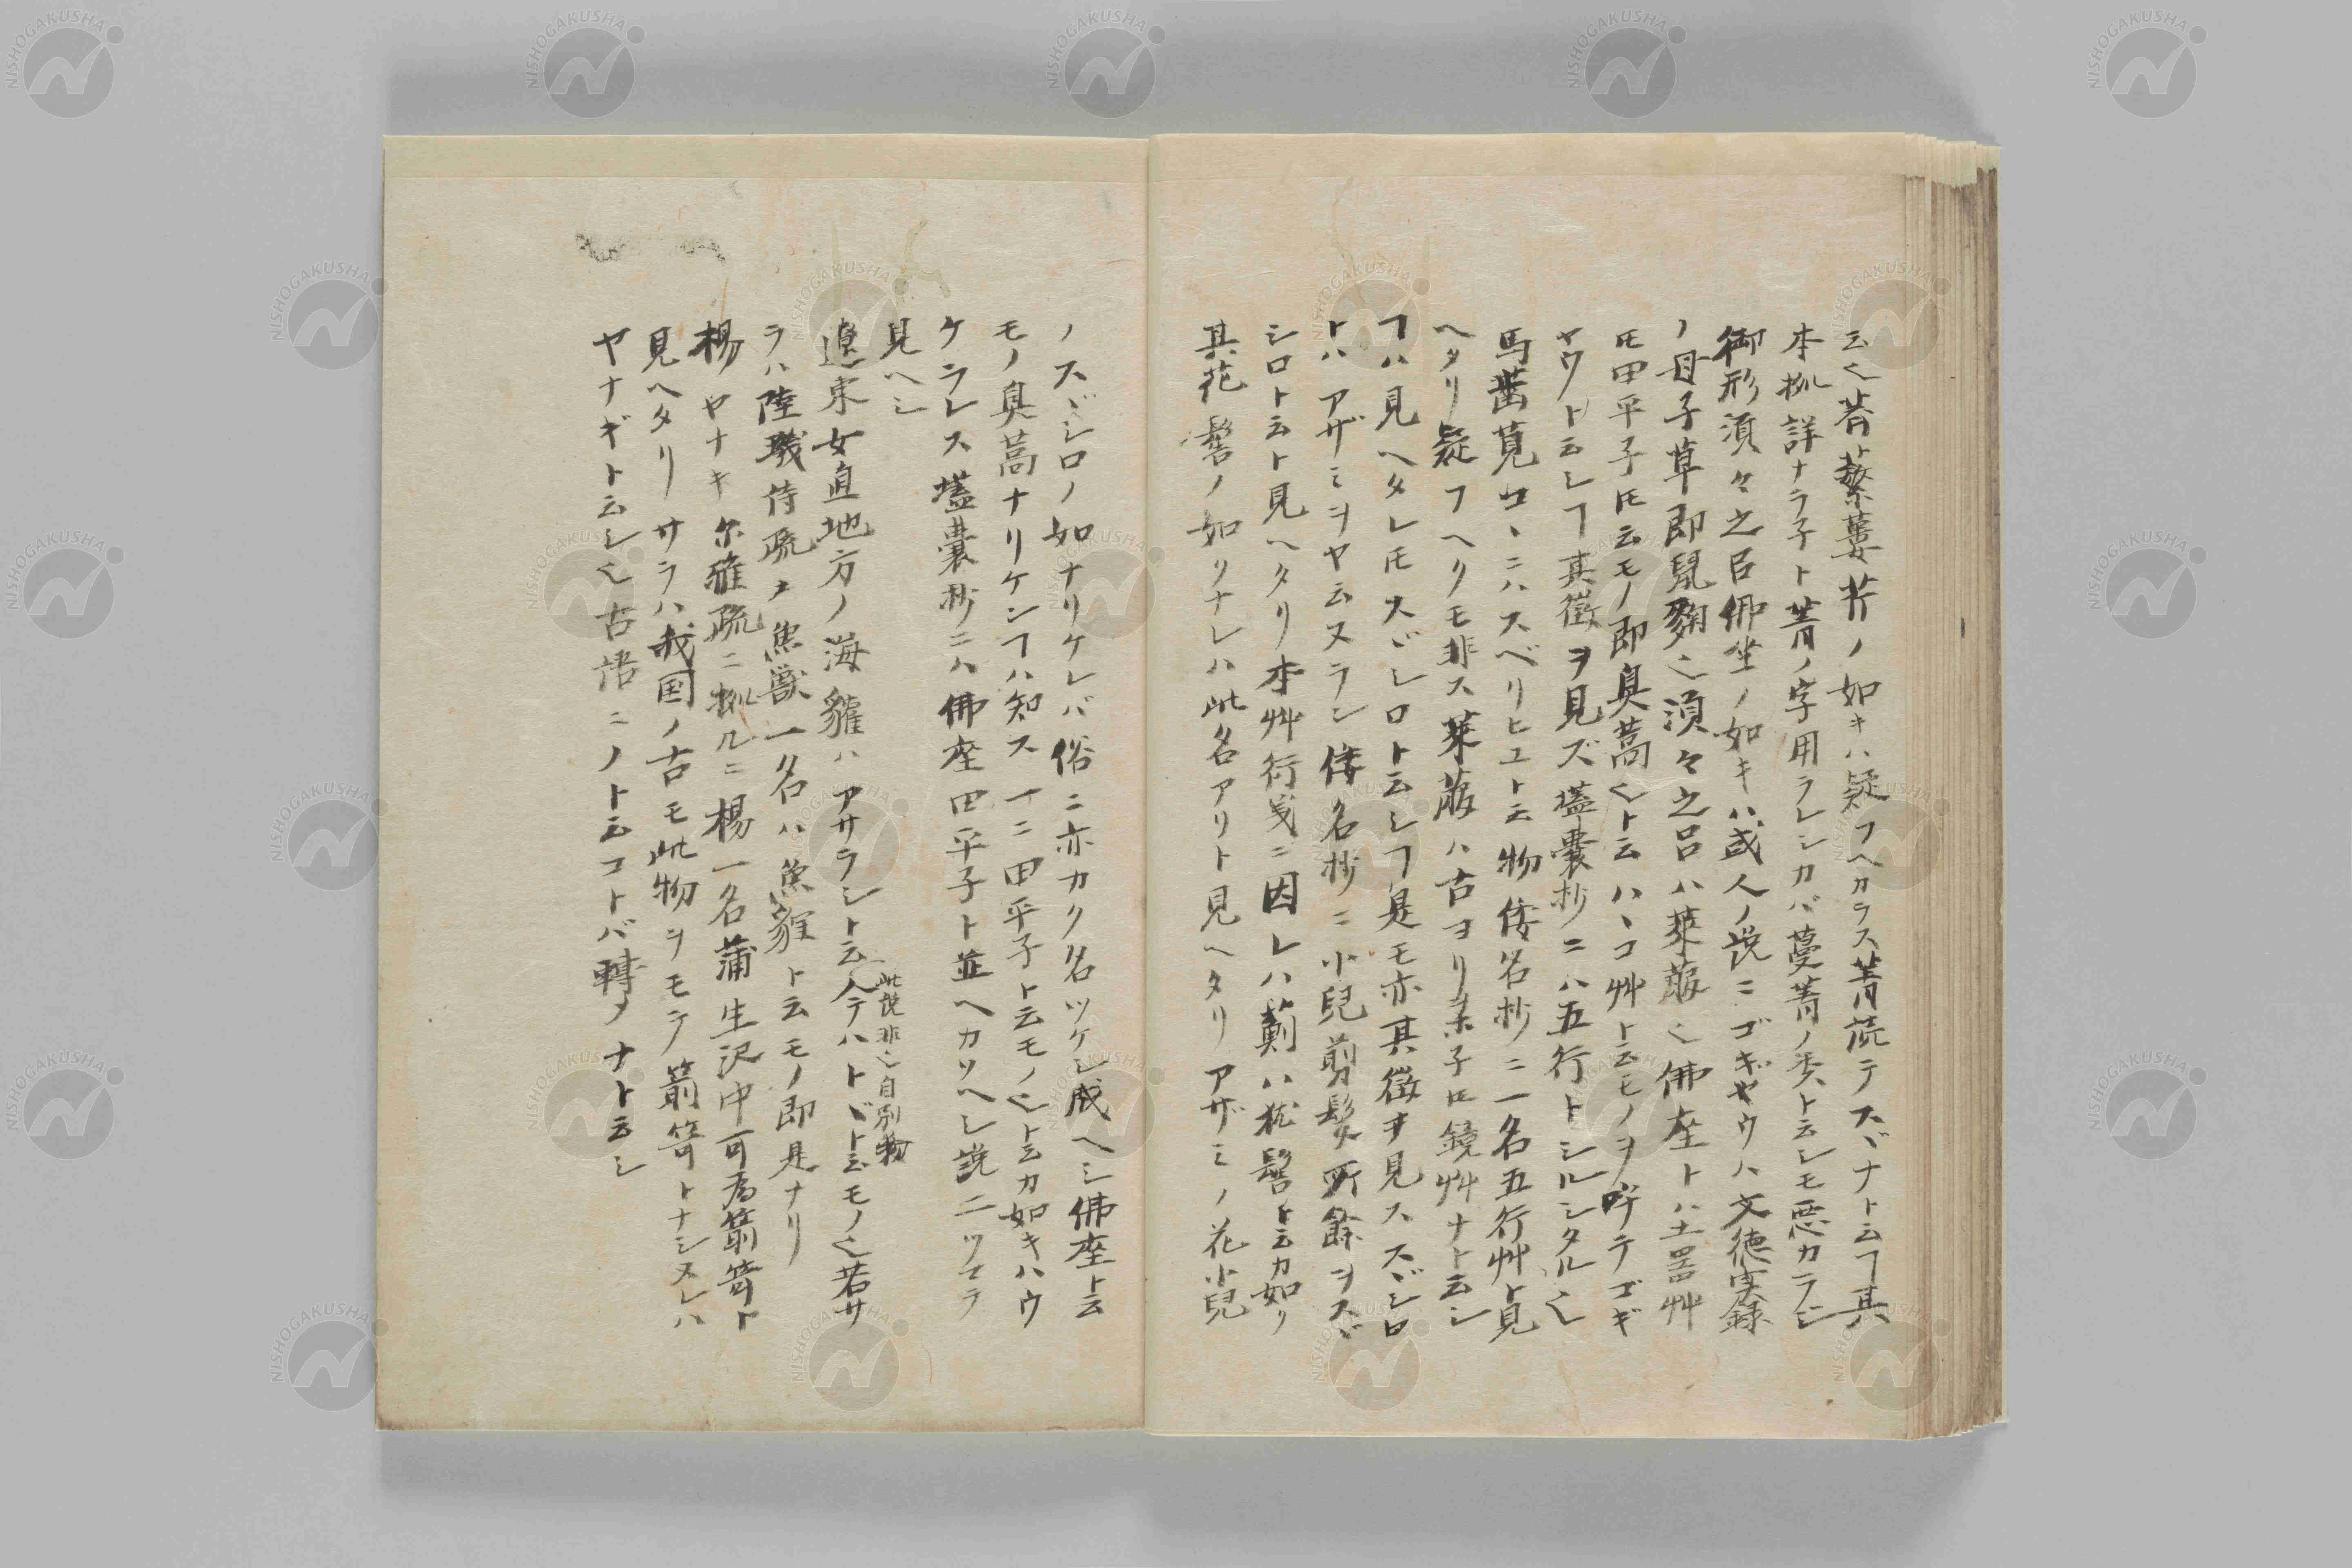 云々薺蘩蔞芹ノ如キハ疑フヘカラス菁読テスヾナト云フ其
本拠詳ナラ子ト菁ノ字用ラレシカバ蔓菁ノ類ト云シモ悪カラジ
御形須々之呂佛坐ノ如キハ或人ノ説ニゴギヤウハ文徳実録
ノ母子草即鼠麴也須々之呂ハ萊菔也佛座トハ土器艸
氏田平子氏云モノ即臭蒿也ト云ハヽコ艸ト云モノヲ呼テゴギ
ヤウト云シヿ其徴ヲ見ズ壒囊抄ニハ五行トシルシタル也
馬歯莧ロヽニハスベリヒユト云物倭名抄ニ一名五行艸ト見
ヘタリ疑フヘクモ非ス萊菔ハ古ヨリ 鏡艸ナト云シ
ヿハ見ヘタレ氏スヾシロト云シヿ是モ亦其徴ヲ見ススヾシロ
トハアザミヲヤ云ヌラン倭名抄ニ小兒剪髪所餘ヲスヾ
シロト云ト見ヘタリ本艸衍義ニ因レハ薊ハ 髻ト云カ如り
其花髻ノ如クナレハ此名アリト見ヘタリアザミノ花小兒
ノスヾシロノ如ナリケレバ俗ニ亦カク名ツケシ成ヘシ佛座ト云
モノ臭蒿ナリケンヿハ知ス一ニ田平子ト云モノ也ト云カ如キハウ
ケラレス壒囊抄ニハ佛座田平子ト並ヘカソヘシ説二ツヲラ
見ヘシ
遼東女直地方ノ海貛ハアサラシト云人テハトヾト云モノ也若サ
此説非也自別物
ラハ陸璣侍疏ノ魚獣一名ハ魚貍ト云モノ即是ナリ
楊 ヤナキ 尓雅疏ニ拠ルニ楊一名蒲生沢中可為箭笴ト
見ヘタリサラハ我国ノ古モ此物ヲモテ箭笴トナシヌレハ
ヤナギト云シ也古語ニノト云コトバ轉メナト云シ